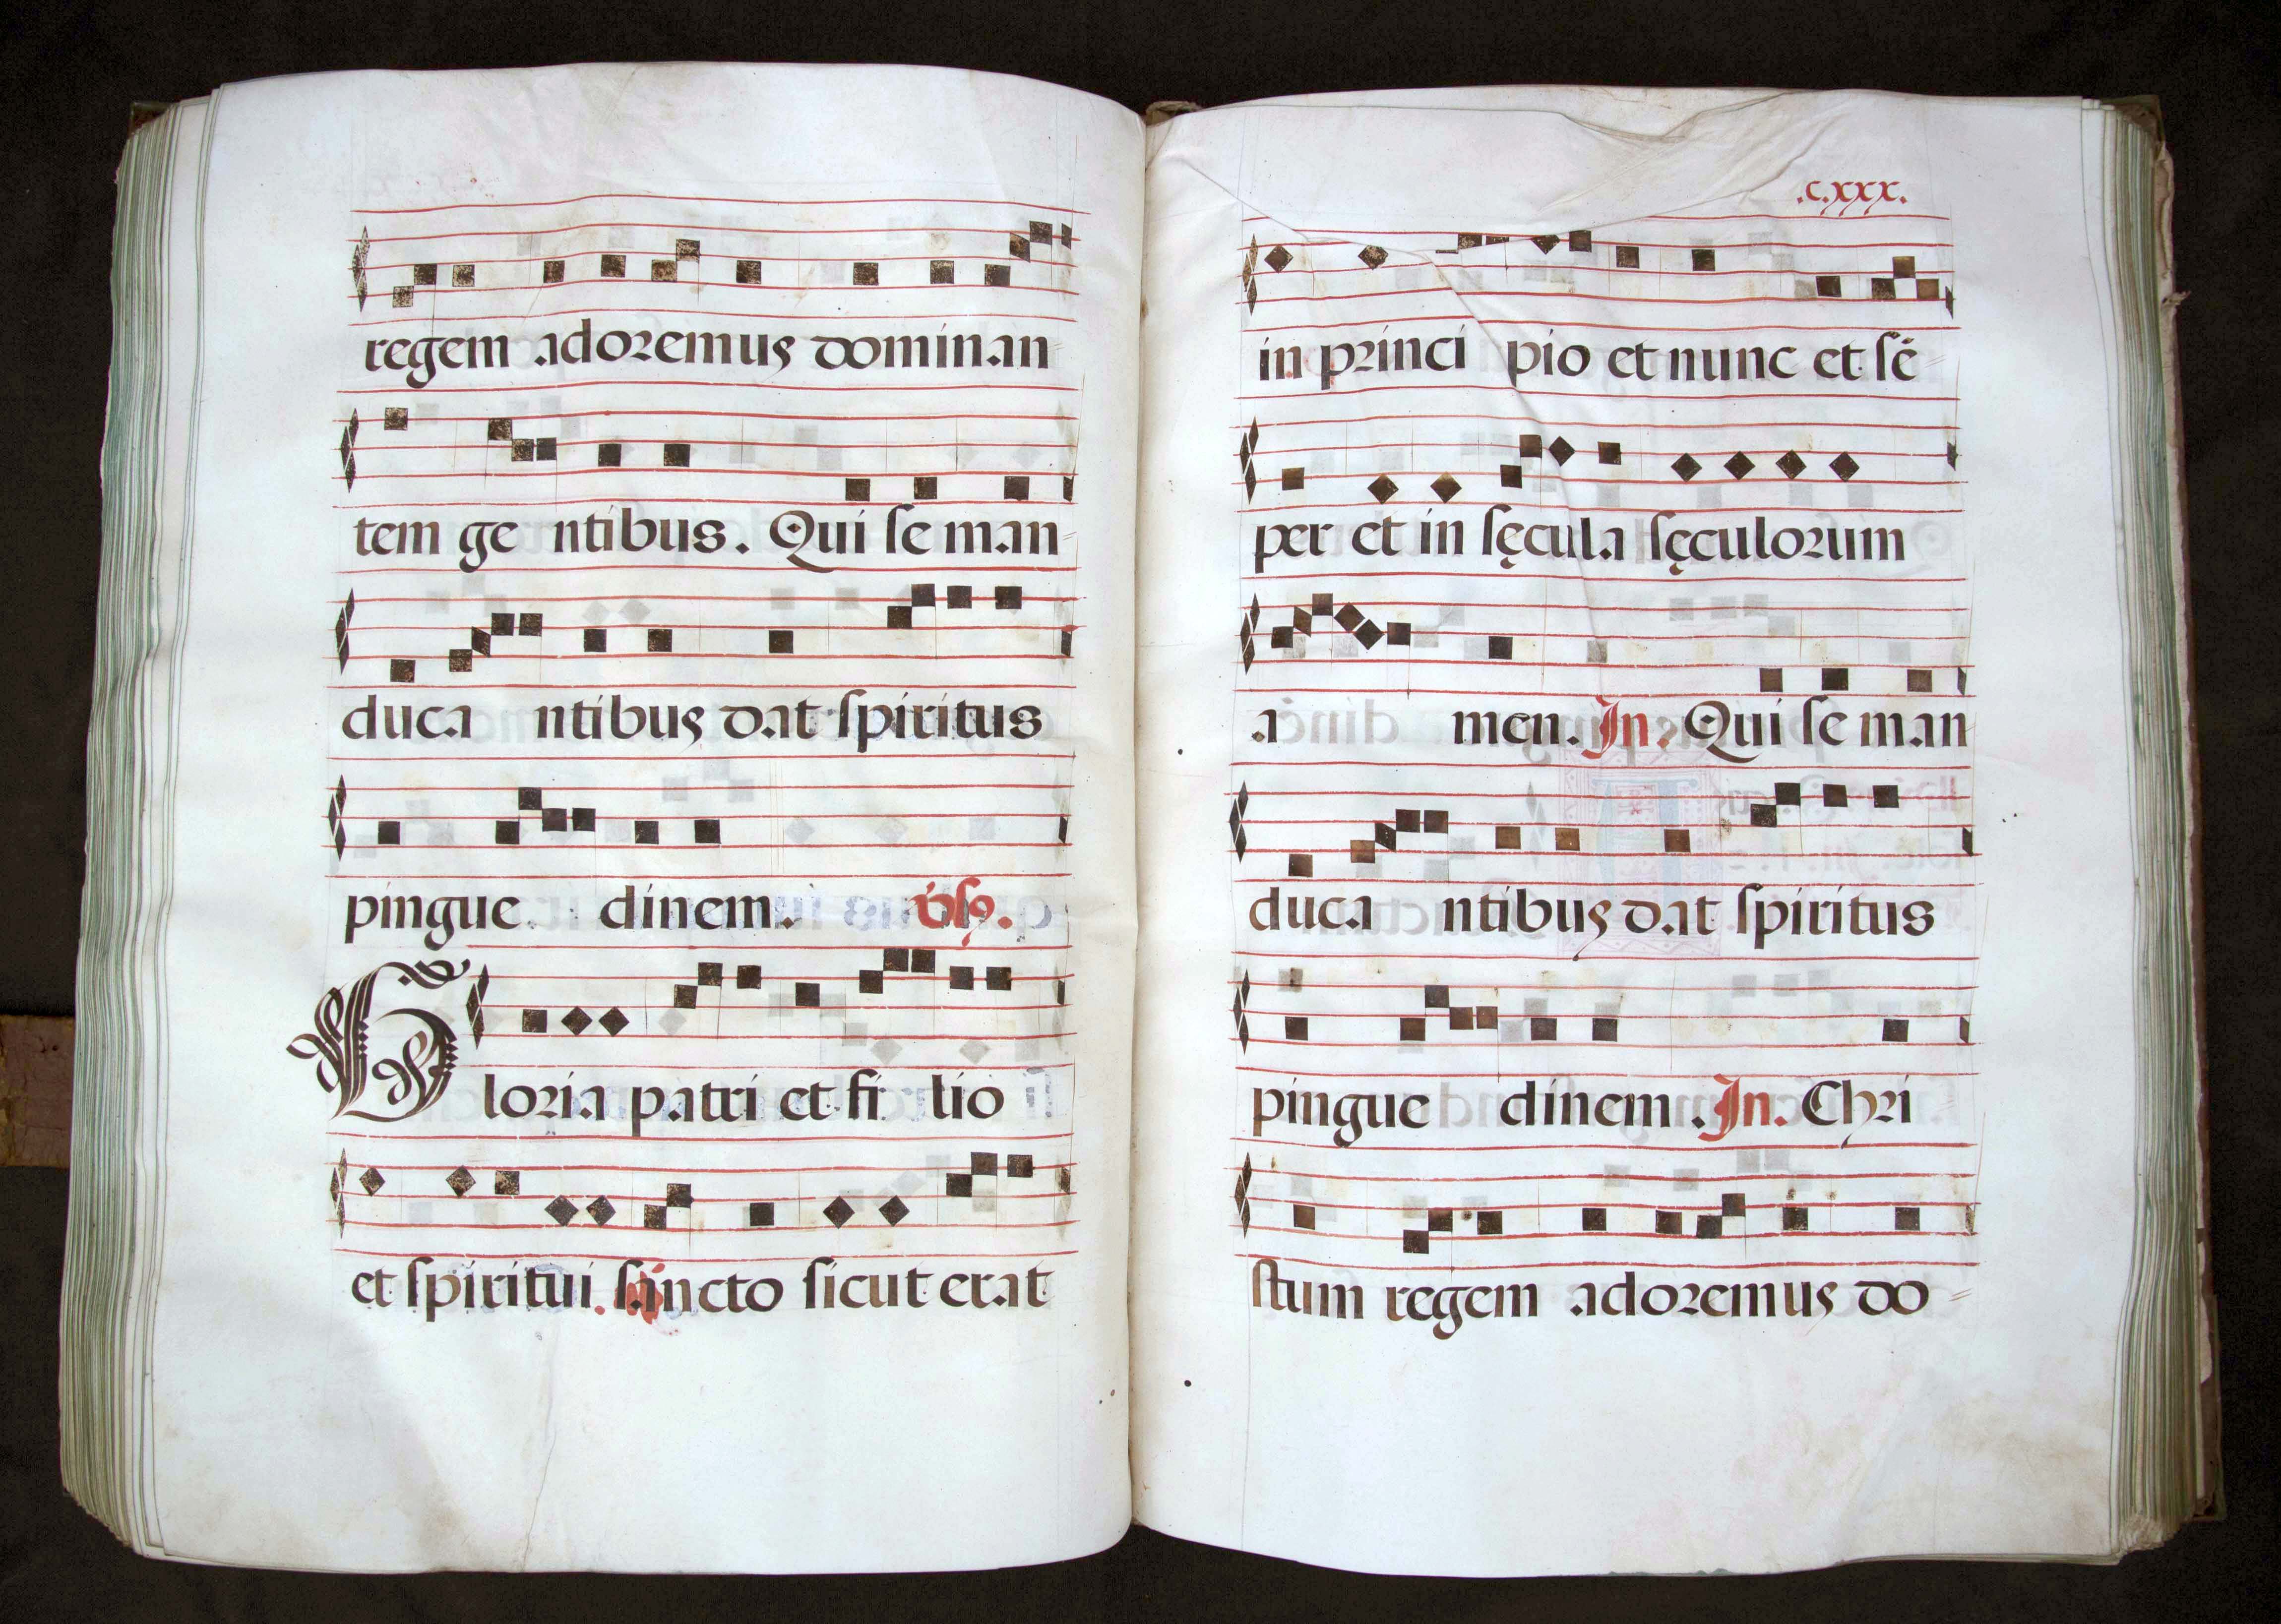 regem adoremus dominan
tem ge ntibus. Qui se man
duca ntibus dat spiritus
pingue dinem. ps9.
Gloria patri et fi lio
et spiritui sancto sicut erat
.c.xxx.
in princi pio et nunc et sē
per et in sęcula sęculorum
a men. In. Qui se man
duca ntibus dat spiritus
pingue dinem. In. Chri
stum regem adoremus do